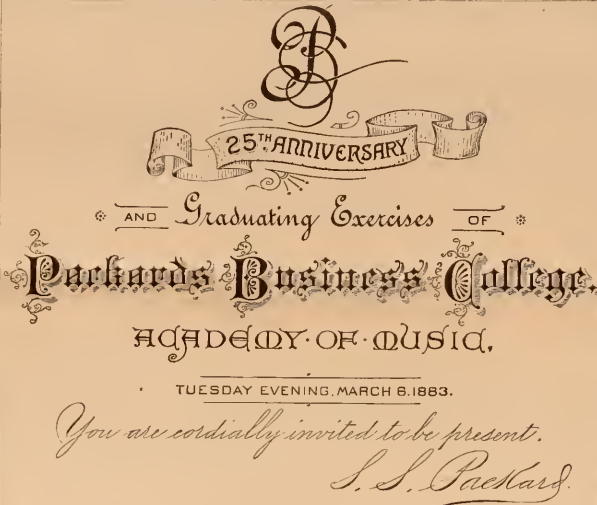 PB
25TH ANNIVERSARY
AND Graduating Exercises OF
Packards Business College.
ACADEMY·OF·MUSIC.
TUESDAY EVENING, MARCH 6. 1883.
You are cordially invited to be present.
S. S. Packard.